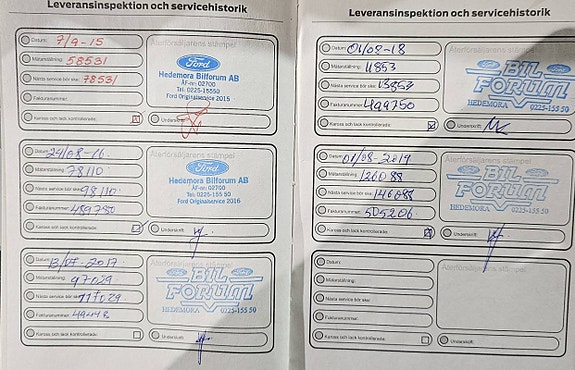 Leveransinspektion och servicehistorik
Datum: 7/9-15
Mätarställning: 58531
Nästa service bör ske: 78531
Fakturanummer:
Kaross och lack kontrollerade:
Återförsäljarens stämpel
Ford
Hedemora Bilforum AB
ÅF-nr: 02700
Tel. 0225-15550
Ford Originalservice 2015
Underskrift:
Datum: 24/08-16
Mätarställning: 78110
Nästa service bör ske: 98110
Fakturanummer: 489780
Kaross och lack kontrollerade:
Återförsäljarens stämpel
Ford
Hedemora Bilforum AB
ÅF-nr: 02700
Tel. 0225-15550
Ford Originalservice 2016
Underskrift:
Datum: 13/07-2017
Mätarställning: 97029
Nästa service bör ske: 117029
Fakturanummer:
Kaross och lack kontrollerade:
Återförsäljarens stämpel
BIL
FORUM
HEDEMORA 0225-155 50
Underskrift:
Leveransinspektion och servicehistorik
Datum: 01/08-18
Mätarställning: 11853
Nästa service bör ske: 13853
Fakturanummer: 499750
Kaross och lack kontrollerade:
Återförsäljarens stämpel
BIL
FORUM
HEDEMORA 0225-155 50
Underskrift:
Datum: 01/08-2019
Mätarställning: 126088
Nästa service bör ske: 146088
Fakturanummer: 505206
Kaross och lack kontrollerade:
Återförsäljarens stämpel
BIL
FORUM
HEDEMORA 0225-155 50
Underskrift:
Datum:
Mätarställning:
Nästa service bör ske:
Fakturanummer:
Kaross och lack kontrollerade:
Återförsäljarens stämpel
Underskrift: